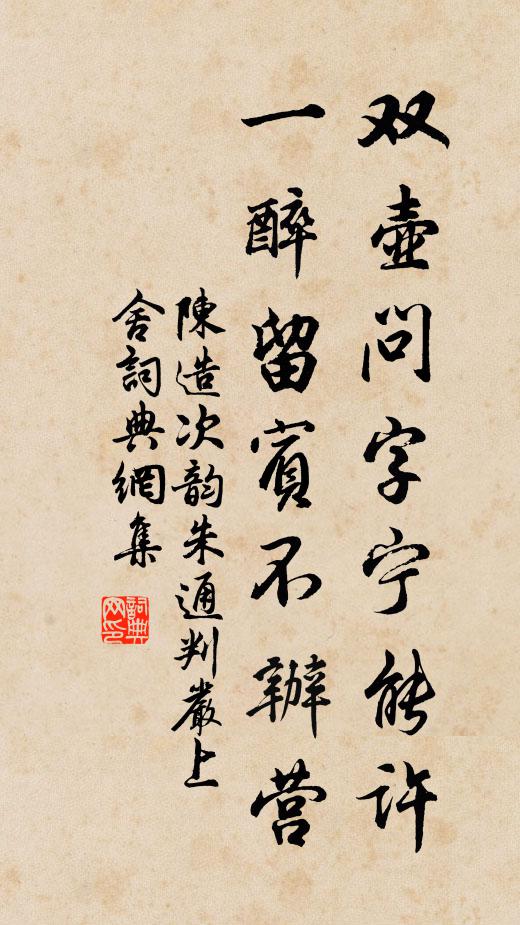 双壺问字宁能许
一醉留賓不辦营
陳造次韵朱通判嚴上
舍詞典網集
詞典网印